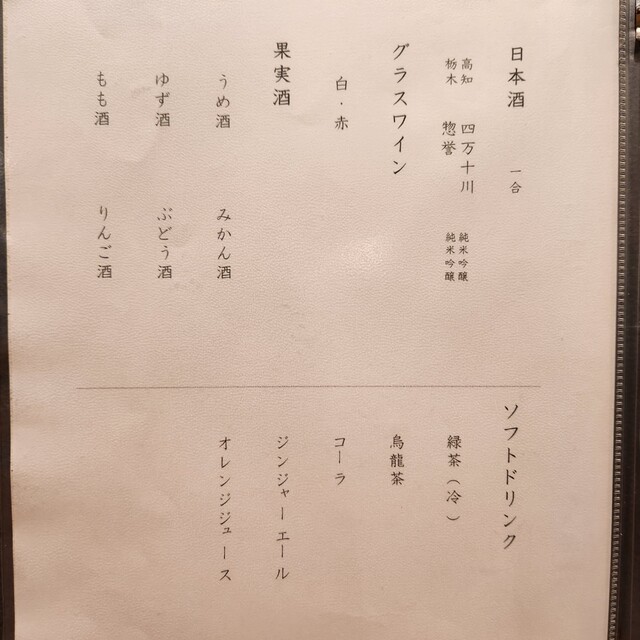 日本酒 一合
高知 四万十川 純米吟醸
栃木 惣誉 純米吟醸
グラスワイン
白・赤
果実酒
うめ酒 みかん酒
ゆず酒 ぶどう酒
もも酒 りんご酒
ソフトドリンク
緑茶（冷）
烏龍茶
コーラ
ジンジャーエール
オレンジジュース